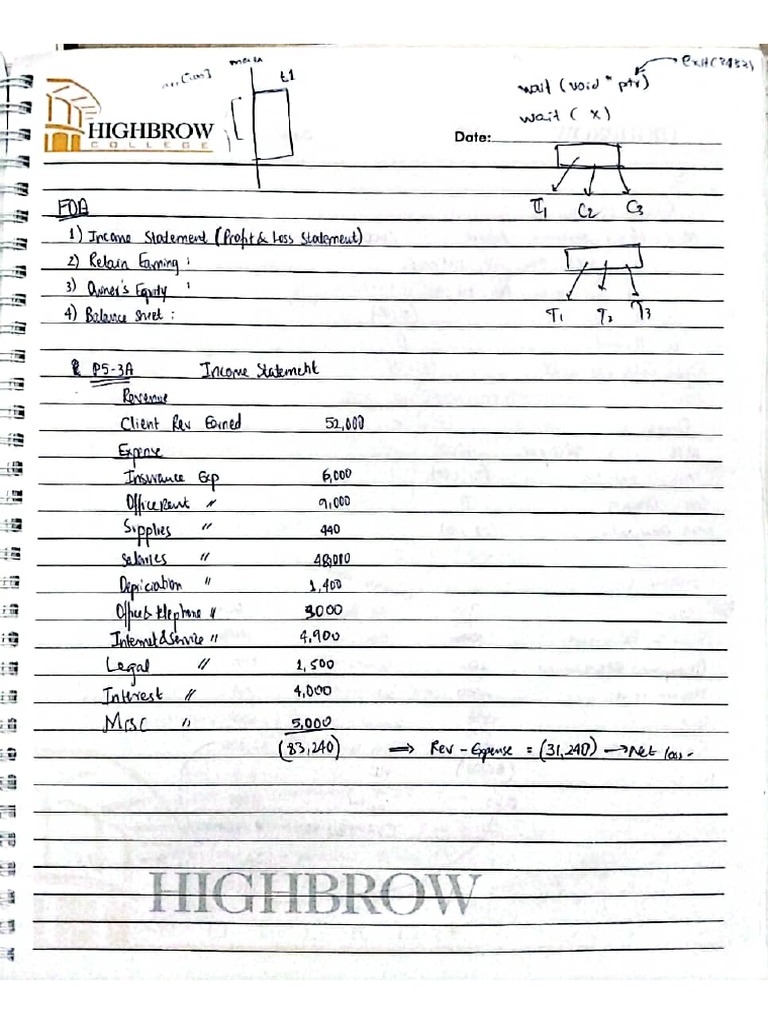 main
t1
wait (void * ptr)
wait ( x )
HIGHBROW
COLLEGE
Date:
T1 C2 C3
FDA
1) Income Statement (Profit & Loss Statement)
2) Retain Earning :
3) Owner's Equity :
4) Balance sheet :
T1 T2 T3
P5-3A Income Statement
Revenue
Client Rev Earned 52,000
Expense
Insurance Exp 6,000
Office Rent " 9,000
Supplies " 440
Salaries " 48,000
Depiciation " 1,400
Office & telephone " 3000
Internet & service " 4,900
Legal " 1,500
Interest " 4,000
Misc " 5,000
(83,240) ⟹ Rev - Expense = (31,240) → Net loss -
HIGHBROW